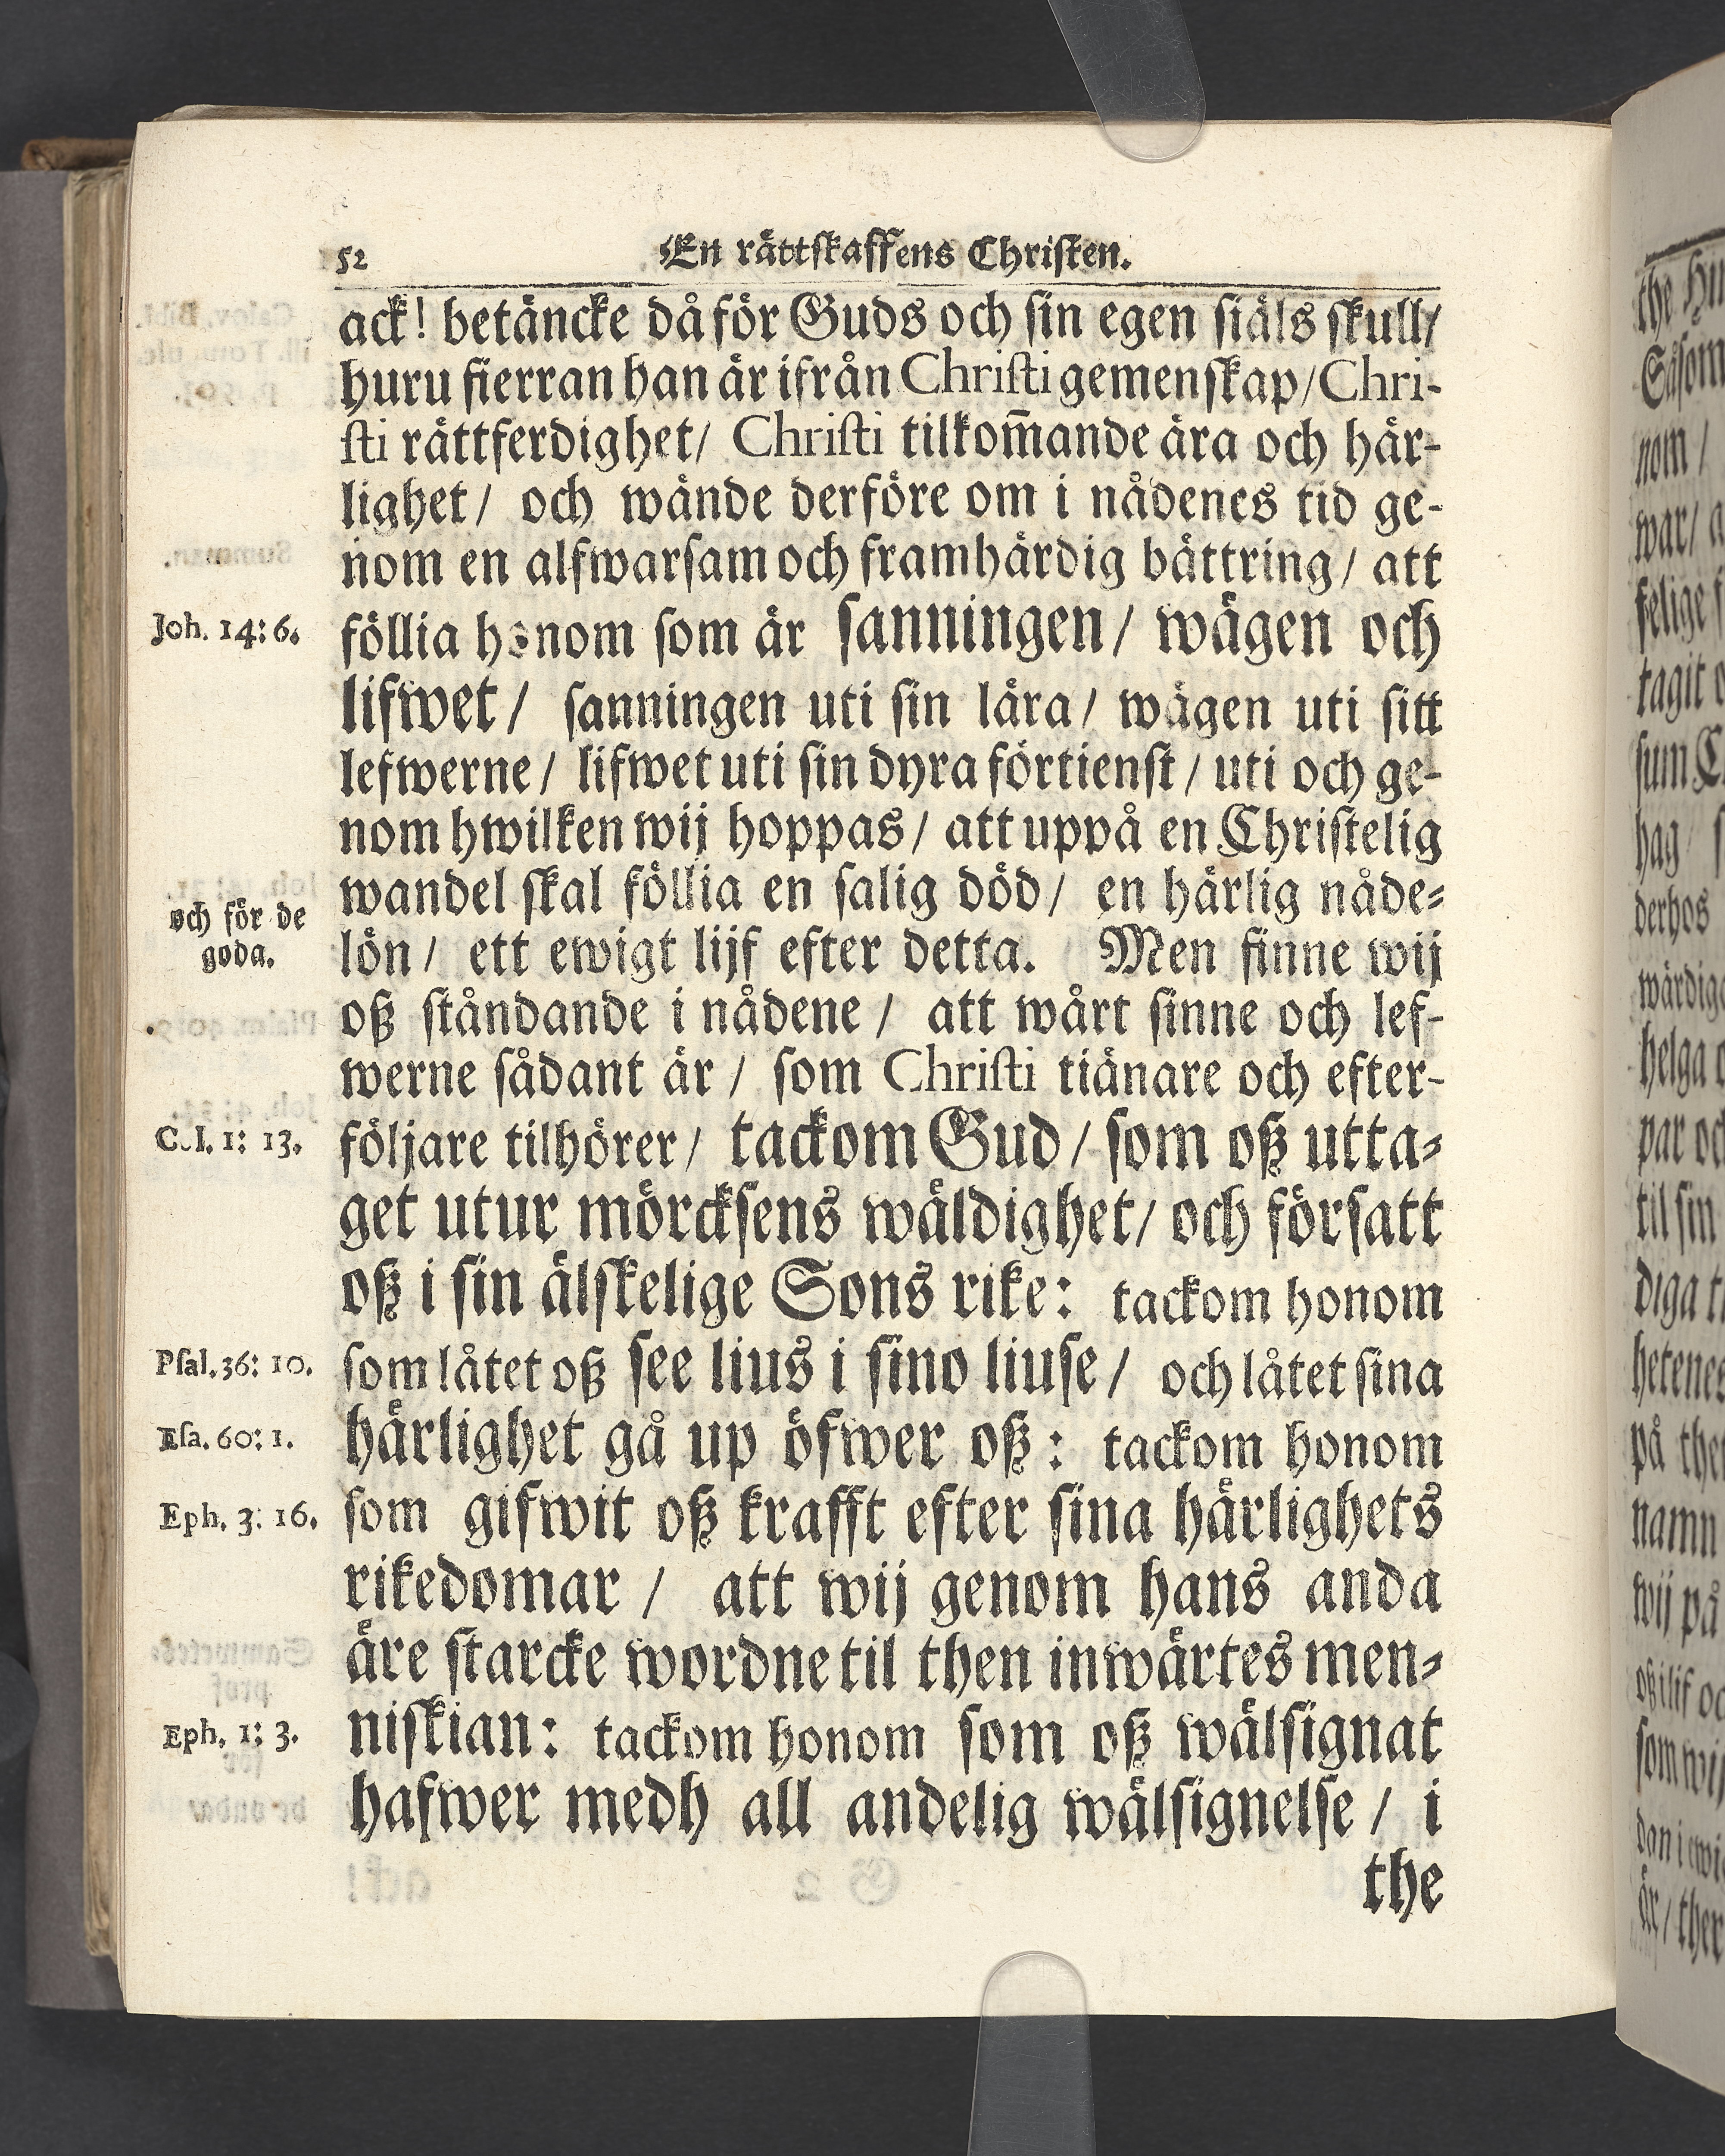 52 En rättskaffens Christen.
ack! betäncke då för Guds och sin egen siäls skull/
huru fierran han är ifrån Christi gemenskap/ Chri-
sti rättferdighet/ Christi tilkom̄ande ära och här-
lighet/ och wände derföre om i nådenes tid ge-
nom en alfwarsam och framhärdig bättring/ att
Joh. 14: 6. föllia honom som är sanningen/ wägen och
lifwet/ sanningen uti sin lära/ wägen uti sitt
lefwerne/ lifwet uti sin dyra förtienst/ uti och ge-
nom hwilken wij hoppas/ att uppå en Christelig
wandel skal föllia en salig död/ en härlig nåde-
och för de
goda.
lön/ ett ewigt lijf efter detta. Men finne wij
oß ståndande i nådene/ att wårt sinne och lef-
werne sådant är/ som Christi tiänare och efter-
Col. 1: 13. följare tilhörer/ tackom Gud/ som oß utta-
get utur mörcksens wäldighet/ och försatt
oß i sin älskelige Sons rike: tackom honom
Psal. 36: 10. som låtet oß see lius i sino liuse/ och låtet sina
Esa. 60: 1. härlighet gå up öfwer oß: tackom honom
Eph. 3: 16. som gifwit oß krafft efter sina härlighets
rikedomar/ att wij genom hans anda
äre starcke wordne til then inwärtes men-
Eph. 1: 3. niskian: tackom honom som oß wälsignat
hafwer medh all andelig wälsignelse/ i
the